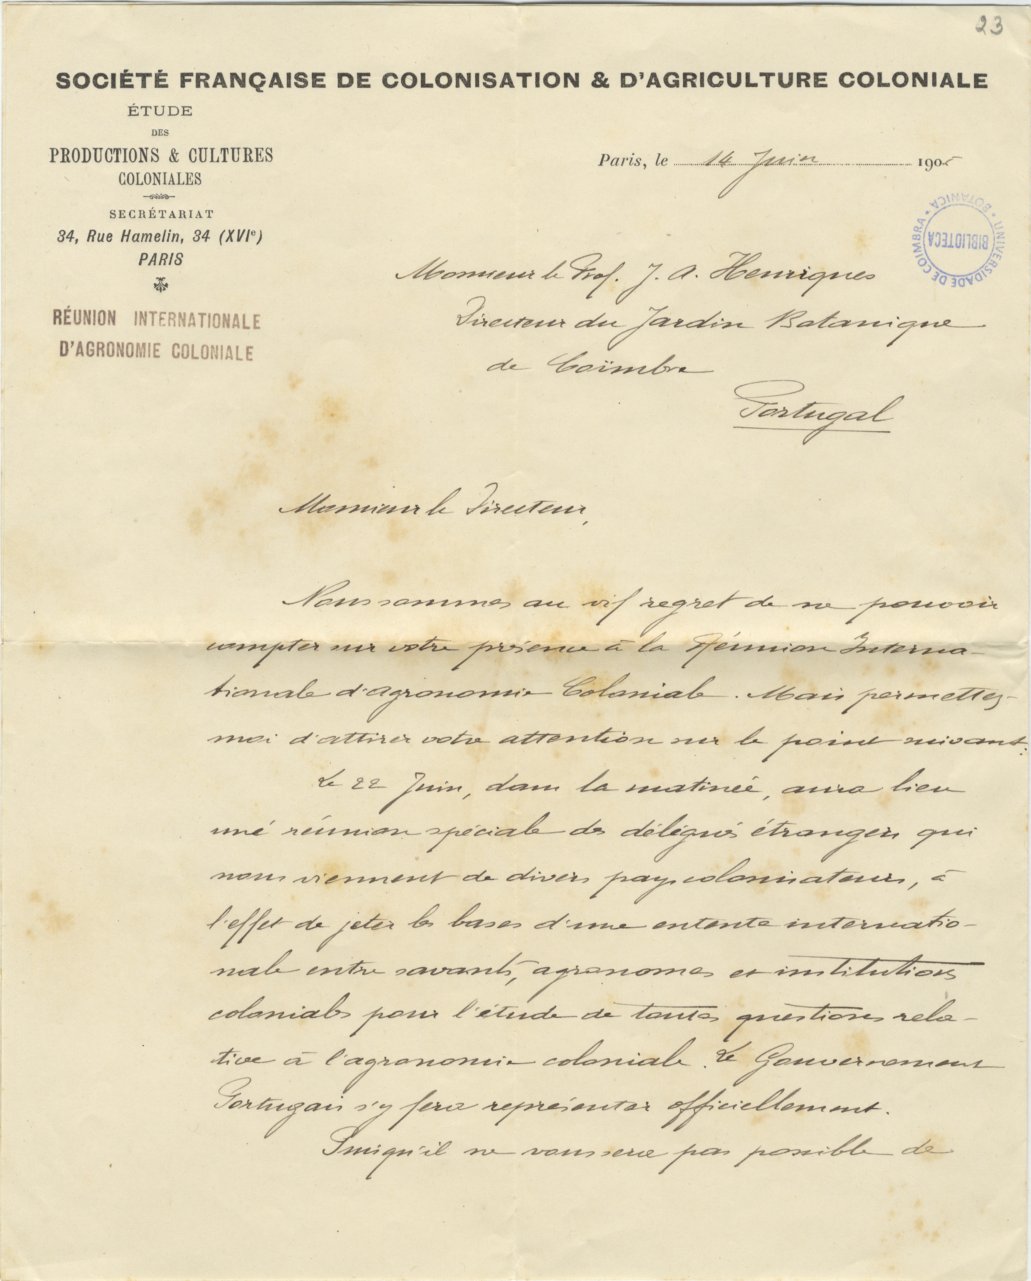 23
SOCIÉTÉ FRANÇAISE DE COLONISATION & D'AGRICULTURE COLONIALE
ÉTUDE
DES
PRODUCTIONS & CULTURES
COLONIALES
SECRÉTARIAT
34, Rue Hamelin, 34 (XVIe)
PARIS
RÉUNION INTERNATIONALE
D'AGRONOMIE COLONIALE
Paris, le 14 Juin 1905
UNIVERSIDADE DE COIMBRA • BOTANICA •
BIBLIOTECA
Monsieur le Prof. J. A. Henriques
Directeur du Jardin Botanique
de Coïmbre
Portugal
Monsieur le Directeur,
Nous sommes au vif regret de ne pouvoir
compter sur votre présence à la Réunion Interna-
tionale d'Agronomie Coloniale. Mais permettez-
moi d'attirer votre attention sur le point suivant:
Le 22 Juin, dans la matinée, aura lieu
une réunion spéciale des délégués étrangers qui
nous viennent de divers pays colonisateurs, à
l'effet de jeter les bases d'une entente internatio-
nale entre savants, agronomes et institutions
coloniales pour l'étude de toutes questions rela-
tive à l'agronomie coloniale. Le Gouvernement
Portugais s'y fera représenter officiellement.
Puisqu'il ne vous sera pas possible de